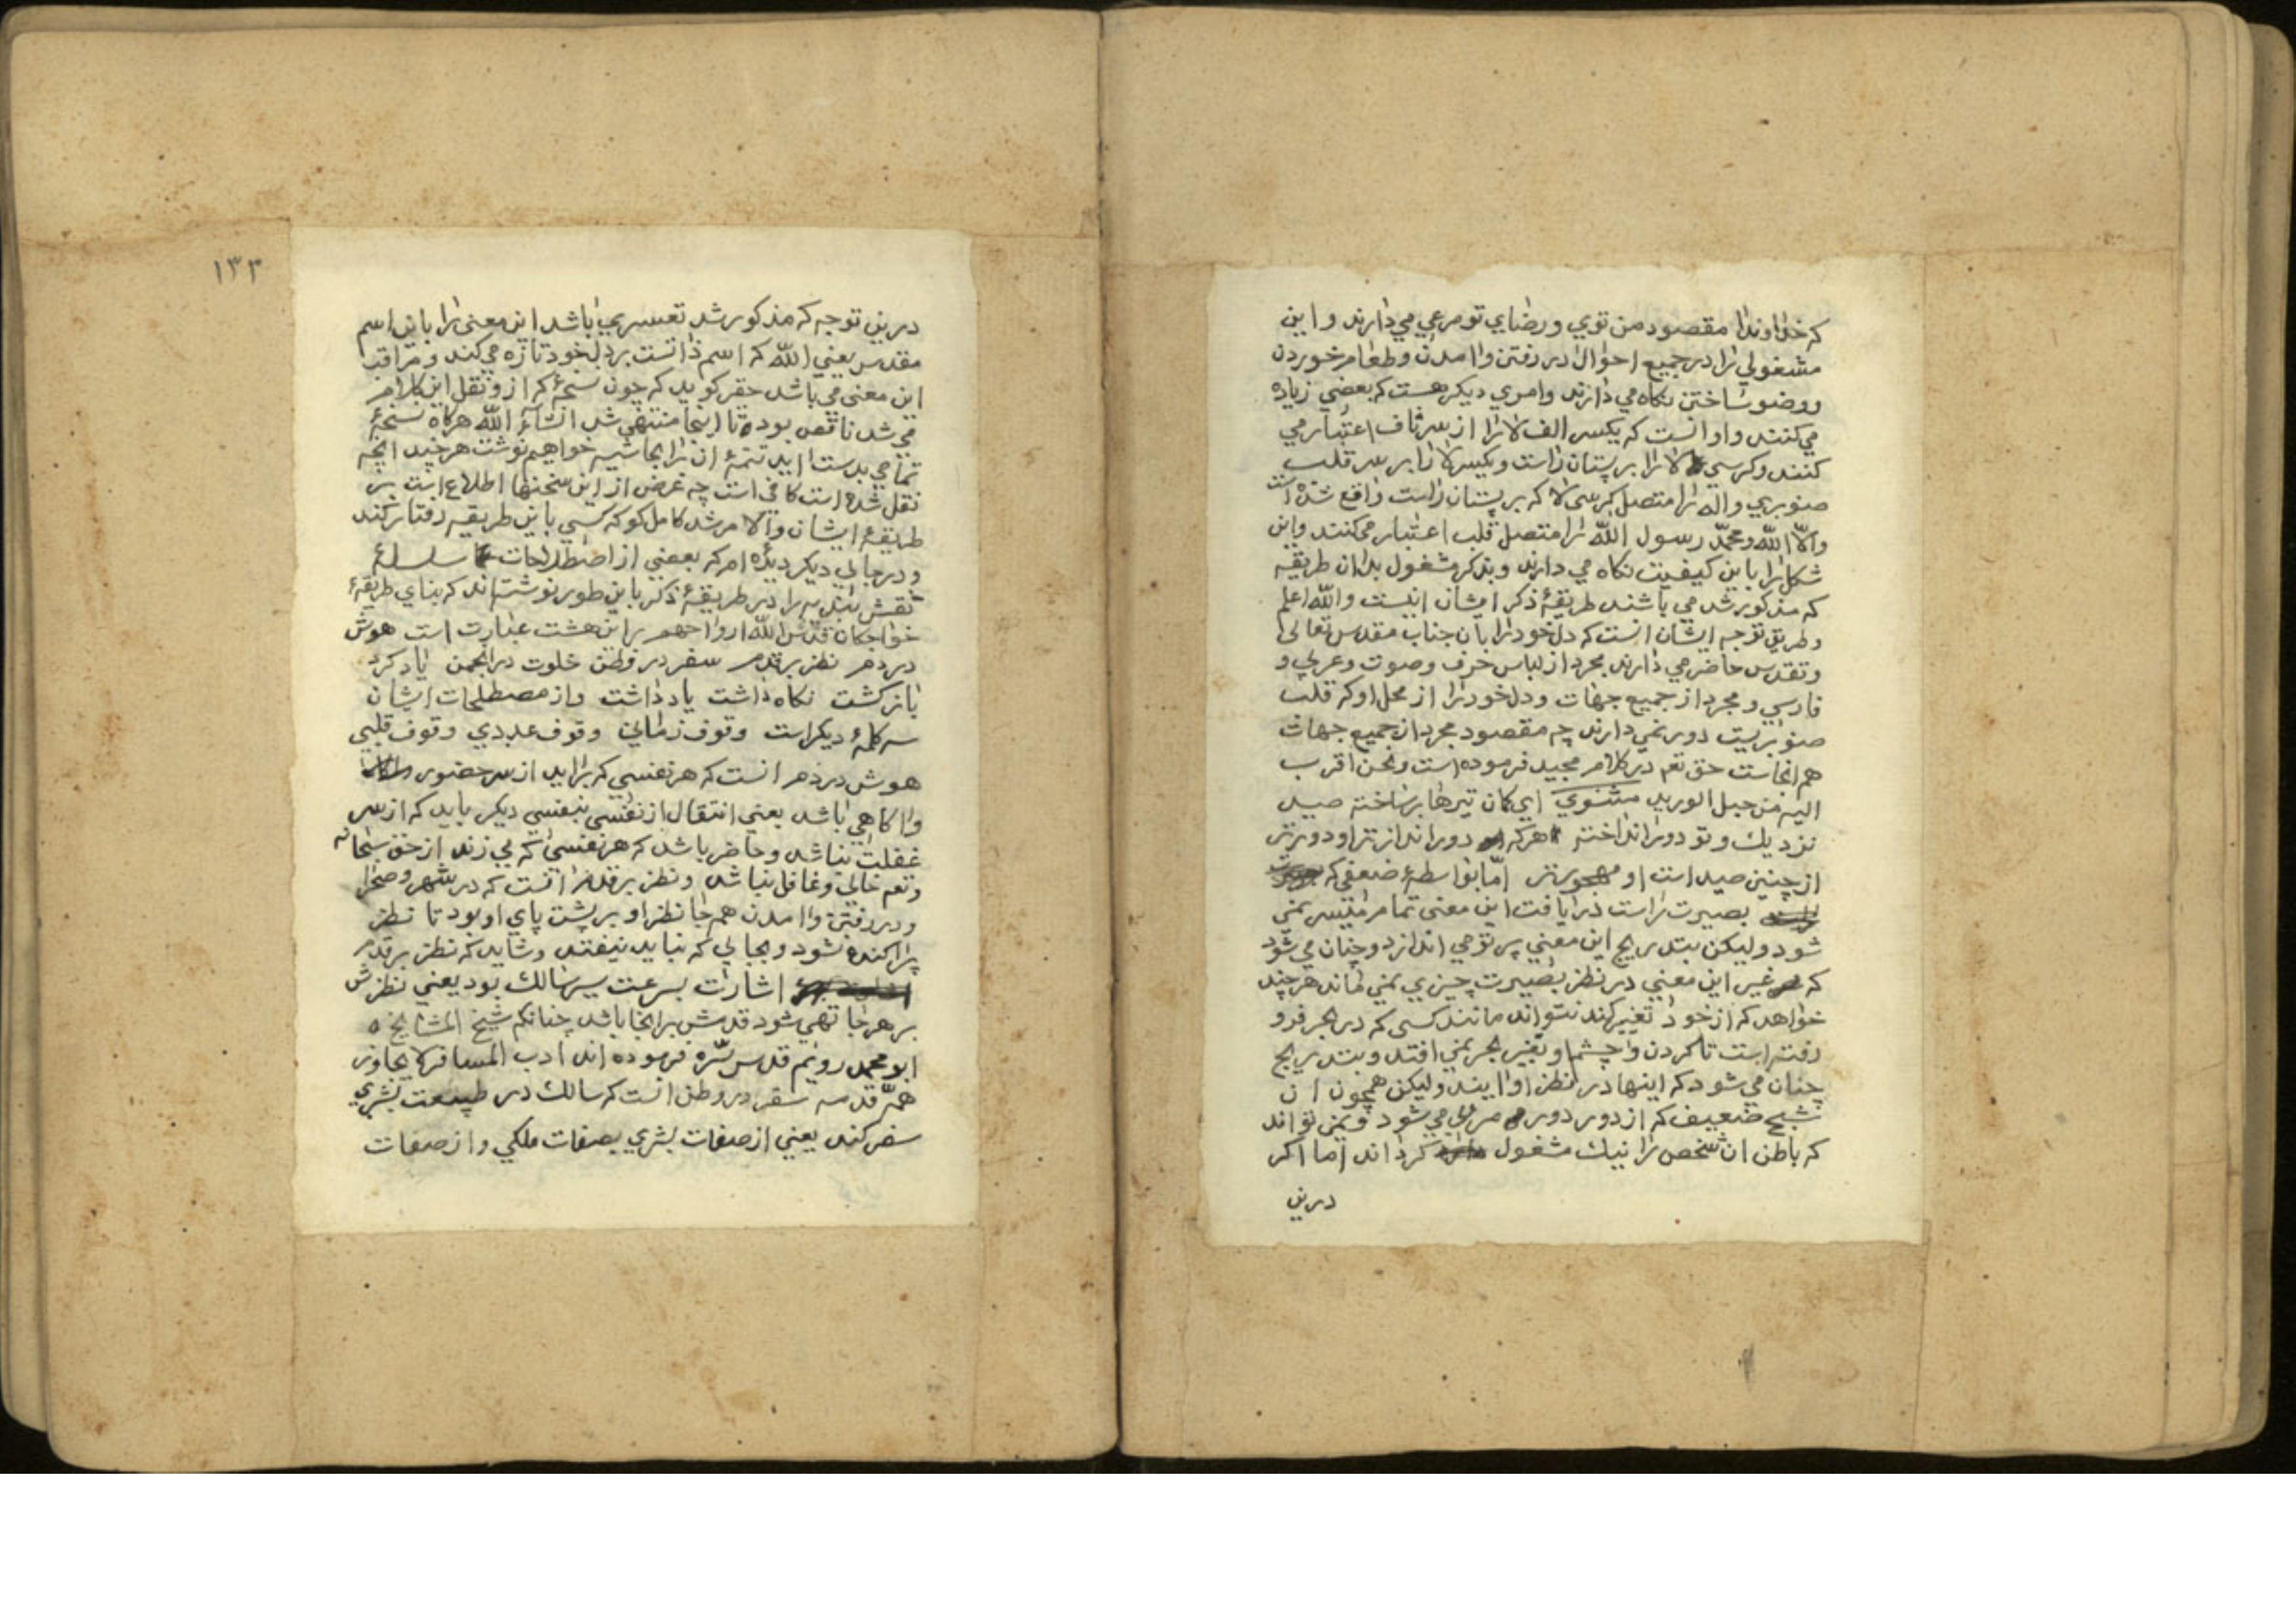 که خداوندا مقصود من توي ورضاي تو مرعي مي دارند واين
مشغولي را در جميع احوال در رفتن واامدن وطعام خوردن
ووضو ساختن نکاه مي دارند وامري ديکر هست که بعضي زياده
مي کنند واو انست که يکسر الف لا را از سر ناف اعتبار مي
کنند وکرسي لا را بر پستان راست ويکسر لا را بر سر قلب
صنوبري واله را متصل کرسي لا که بر پستان راست واقع شده است
والّا اللّه ومحمّد رسول اللّه را متصل قلب اعتبار مي کنند واين
شکل را باين کيفيت نکاه مي دارند وبذکر مشغول بدان طريقه
که مذکور شد مي باشند طريقۀ ذکر ايشان اينست واللّه اعلم
وطريق توجه ايشان انست که دل خود را بان جناب مقدس تعالي
وتقدس حاضر مي دارند مجرد از لباس حرف وصوت وعربي و
فارسي ومجرد از جميع جهات ودل خود را از محل او که قلب
صنوبريست دور نمي دارند چه مقصود مجرد از جميع جهات
هم انجاست حق تعم در کلام مجيد فرموده است ونحن اقرب
اليه من حبل الوريد مثنوي اي کان تيرها بر ساخته صيد
نزديك وتو دور انداخته هرکه دور انداز تر او دور تر
از چنين صيد است او مهجور تر امّا بواسطۀ ضعفي که
بصيرت راست دريافت اين معني تمام متيسر نمي
شود وليکن بتدريج اين معني پرتو مي اندازد وچنان مي شود
که غير اين معني در نظر بصيرت چيزي نمي ماند هر چند
خواهد که از خود تعبير کند نتواند مانند کسي که در بحر فرو
رفته است تا کردن وچشم او بغير بحر نمي افتد وبتدريج
چنان مي شود که اينها در نظر او ايند وليکن همچون ان
شبح ضعيف که از دور دور مرئي مي شود ونمي تواند
که باطن ان شخص را نيك مشغول کرداند اما اکر
درين
١٣٣
درين توجه که مذکور شد تعسري باشد اين معني را باين اسم
مقدس يعني اللّه که اسم ذاتست بر دل خود تازه مي کند ومراقب
اين معني مي باشد حقير کويد که چون نسخۀ که ازو نقل اين کلام
مي شد ناقص بوده تا اينجا منتهي شد انشاء اللّه هرکاه نسخۀ
تمامي بدست ايد تتمۀ ان را بحاشيه خواهيم نوشت هر چند انچه
نقل شده است کافي است چه غرض از اين سخنها اطلاع است بر
طريقۀ ايشان والّا مرشد کامل کو که کسي باين طريقه رفتار کند
ودر جاي ديکر ديده ام که بعضي از اصطلاحات سلسلۀ
نقش بنديه را در طريقۀ ذکر باين طور نوشته اند که بناي طريقۀ
خواجکان قدس اللّه ارواحهم بر اين هشت عبارت است هوش
در دم نظر بر قدم سفر در وطن خلوت در انجمن ياد کرد
باز کشت نکاه داشت ياد داشت واز مصطلحات ايشان
سه کلمۀ ديکر است وقوف زماني وقوف عددي وقوف قلبي
هوش در دم انست که هر نفسي که برايد از سر حضور
واکاهي باشد يعني انتقال از نفسي بنفسي ديکر بايد که از سر
غفلت نباشد وحاضر باشد که هر نفسي که مي زند از حق سبحانه
وتعم خالي وغافل نباشد ونظر بر قدم انست که در شهر وصحرا
ودر رفتن واامدن همه جا نظر او بر پشت پاي او بود تا نظر
پراکنده نشود وبجايي که نبايد نيفتد وشايد که نظر بر قدم
اشارت بسرعت سير سالك بود يعني نظرش
بر هر جا تهي شود قدمش بر انجا باشد چنانکه شيخ المشايخ
ابو محمد رويم قدس سرّه فرموده اند ادب المسافر لا يجاوز
همّه قدمه سفر در وطن انست که سالك در طبيعت بشري
سفر کند يعني از صفات بشري بصفات ملکي واز صفات